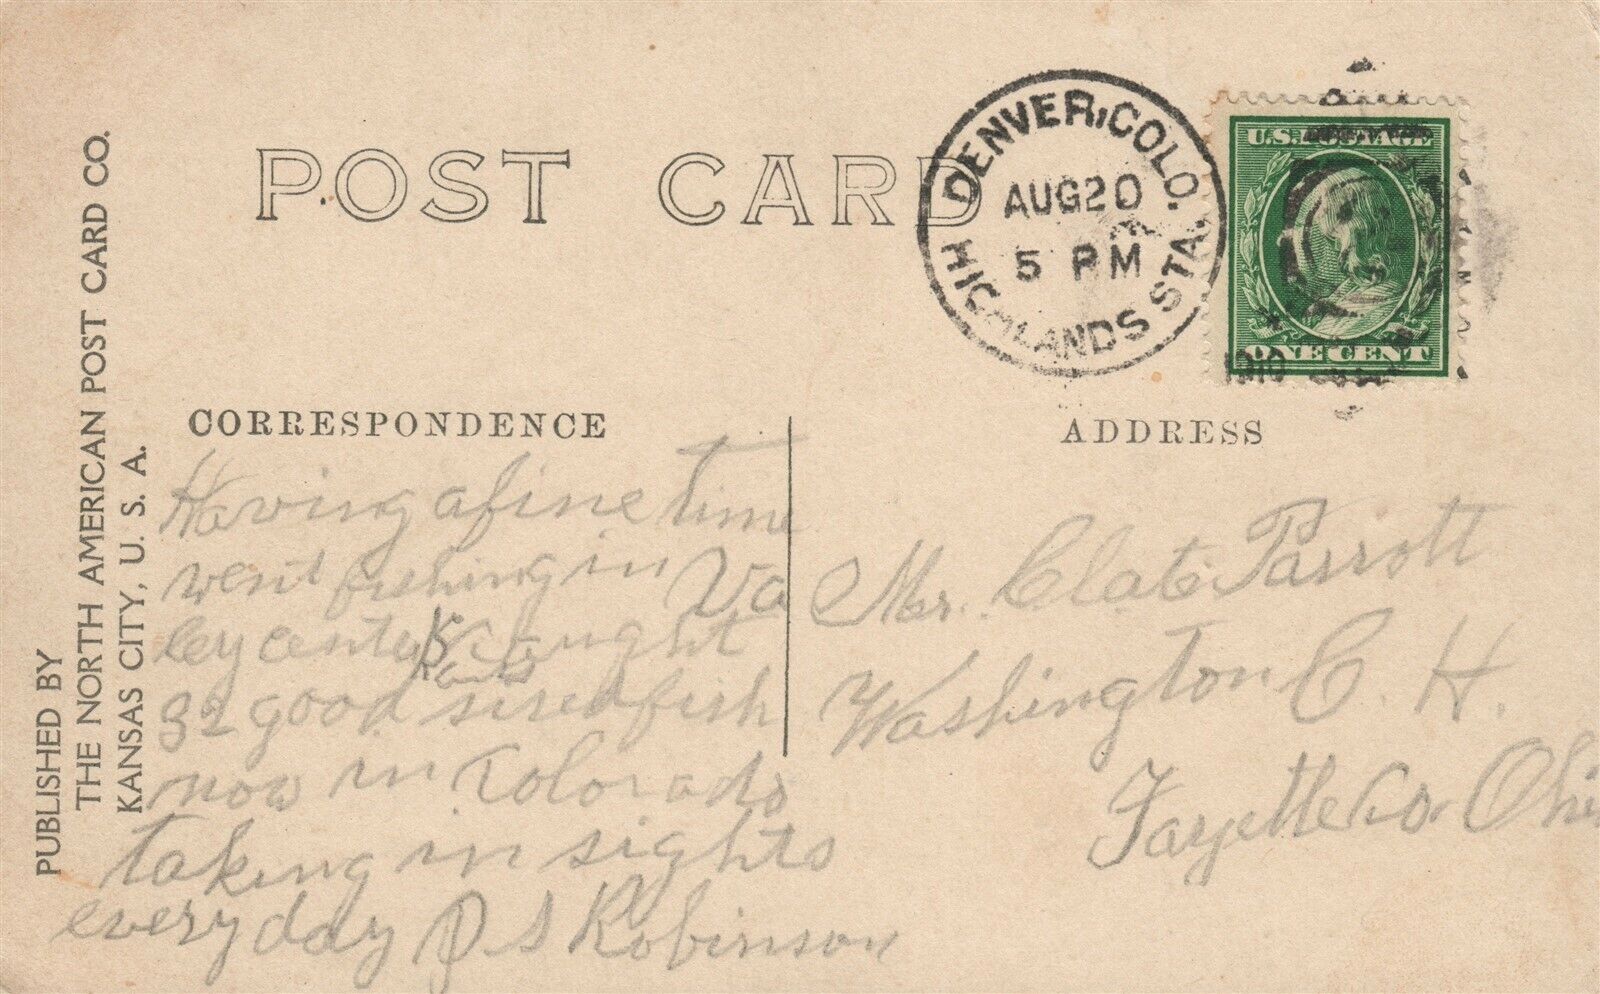 PUBLISHED BY
THE NORTH AMERICAN POST CARD CO.
KANSAS CITY, U. S. A.
POST CARD
DENVER, COLO.
AUG 20
5 PM
HIGHLANDS STA.
1910
U.S. POSTAGE
ONE CENT
CORRESPONDENCE
Having a fine time
went fishing in Va
ley center caught
Kans
32 good sised fish
now in Colorado
taking in sights
every day P S Robinson
ADDRESS
Mr. Clate Parrott
Washington C. H.
Fayette Co. Ohio